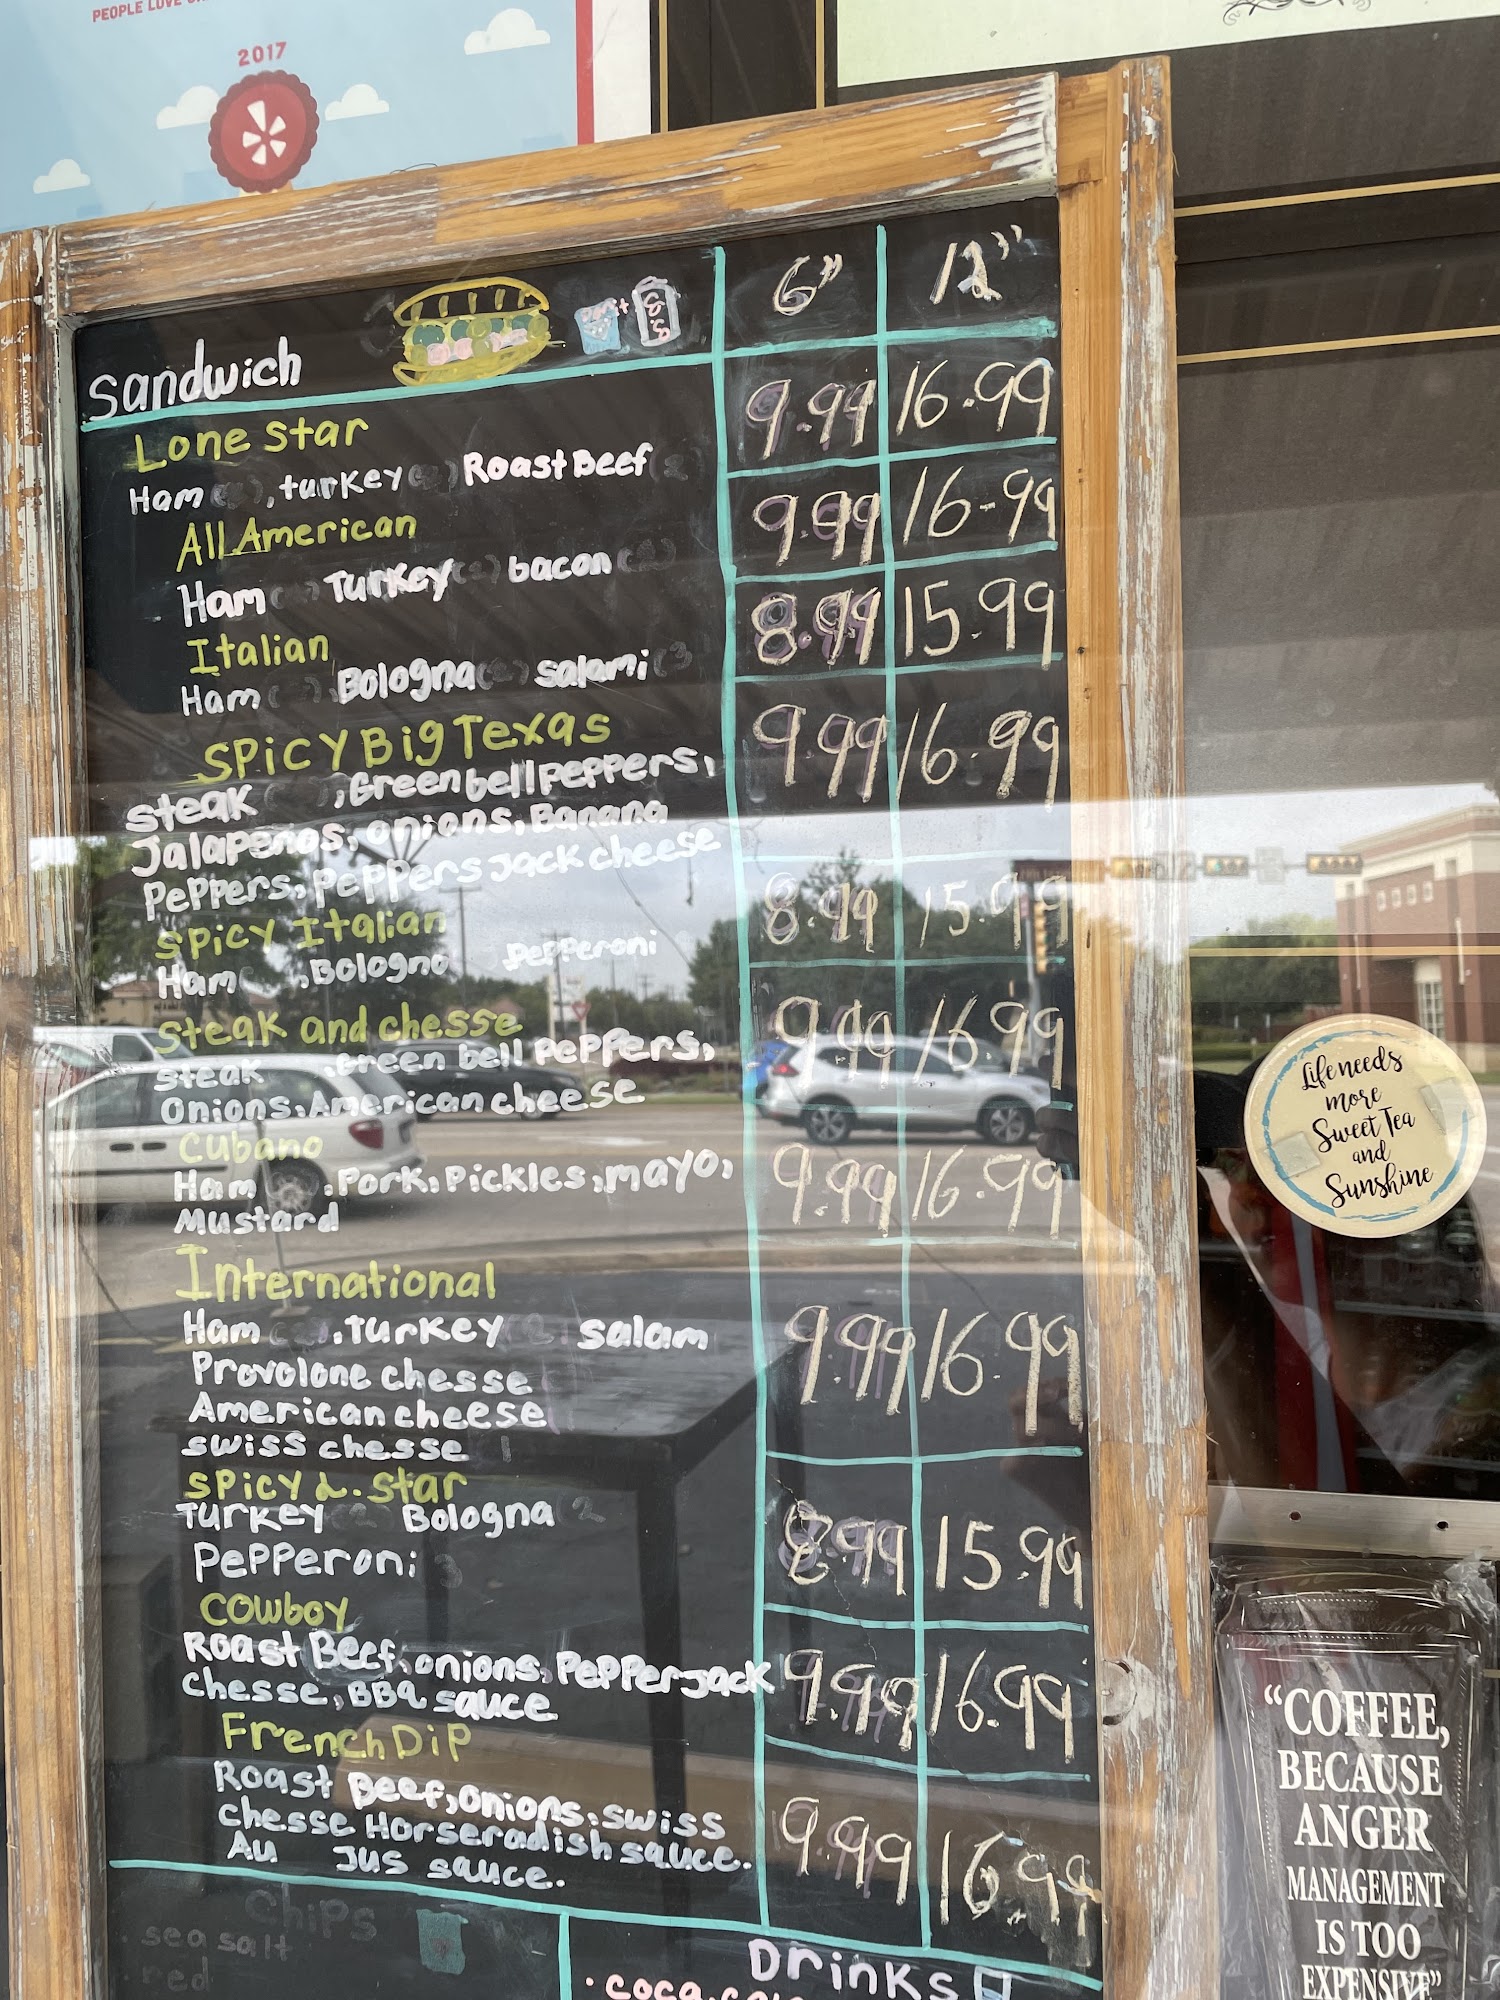 PEOPLE LOVE
2017
Sandwich 6" 12"
Lone Star 9.99 16.99
Ham (2), turkey (2) Roast Beef (2)
All American 9.99 16-99
Ham Turkey (2) bacon
Italian 8.99 15.99
Ham Bologna (2) Salami (3
Spicy Big Texas 9.99 16.99
Steak , Green bell Peppers,
Jalapeños, onions, Banana
Peppers, Peppers Jack cheese
Spicy Italian 8.99 15.99
Ham , Bologna Pepperoni
Steak and chesse 9.99 16.99
Steak , Green bell Peppers,
Onions, American cheese
Cubano 9.99 16.99
Ham , Pork, Pickles, mayo,
Mustard
International 9.99 16.99
Ham (2), Turkey 2 Salam
Provolone chesse
American cheese
Swiss chesse 1
Spicy L. Star 8.99 15.99
Turkey 2 Bologna 2
Pepperoni 3
Cowboy 9.99 16.99
Roast Beef, onions, Pepper Jack
Chesse, BBQ sauce
French Dip 9.99 16.99
Roast Beef, onions, swiss
chesse Horseradish sauce.
Au Jus sauce.
Chips
. sea salt
. red
Drinks
Life needs
more
Sweet Tea
and
Sunshine
“COFFEE,
BECAUSE
ANGER
MANAGEMENT
IS TOO
EXPENSIVE”